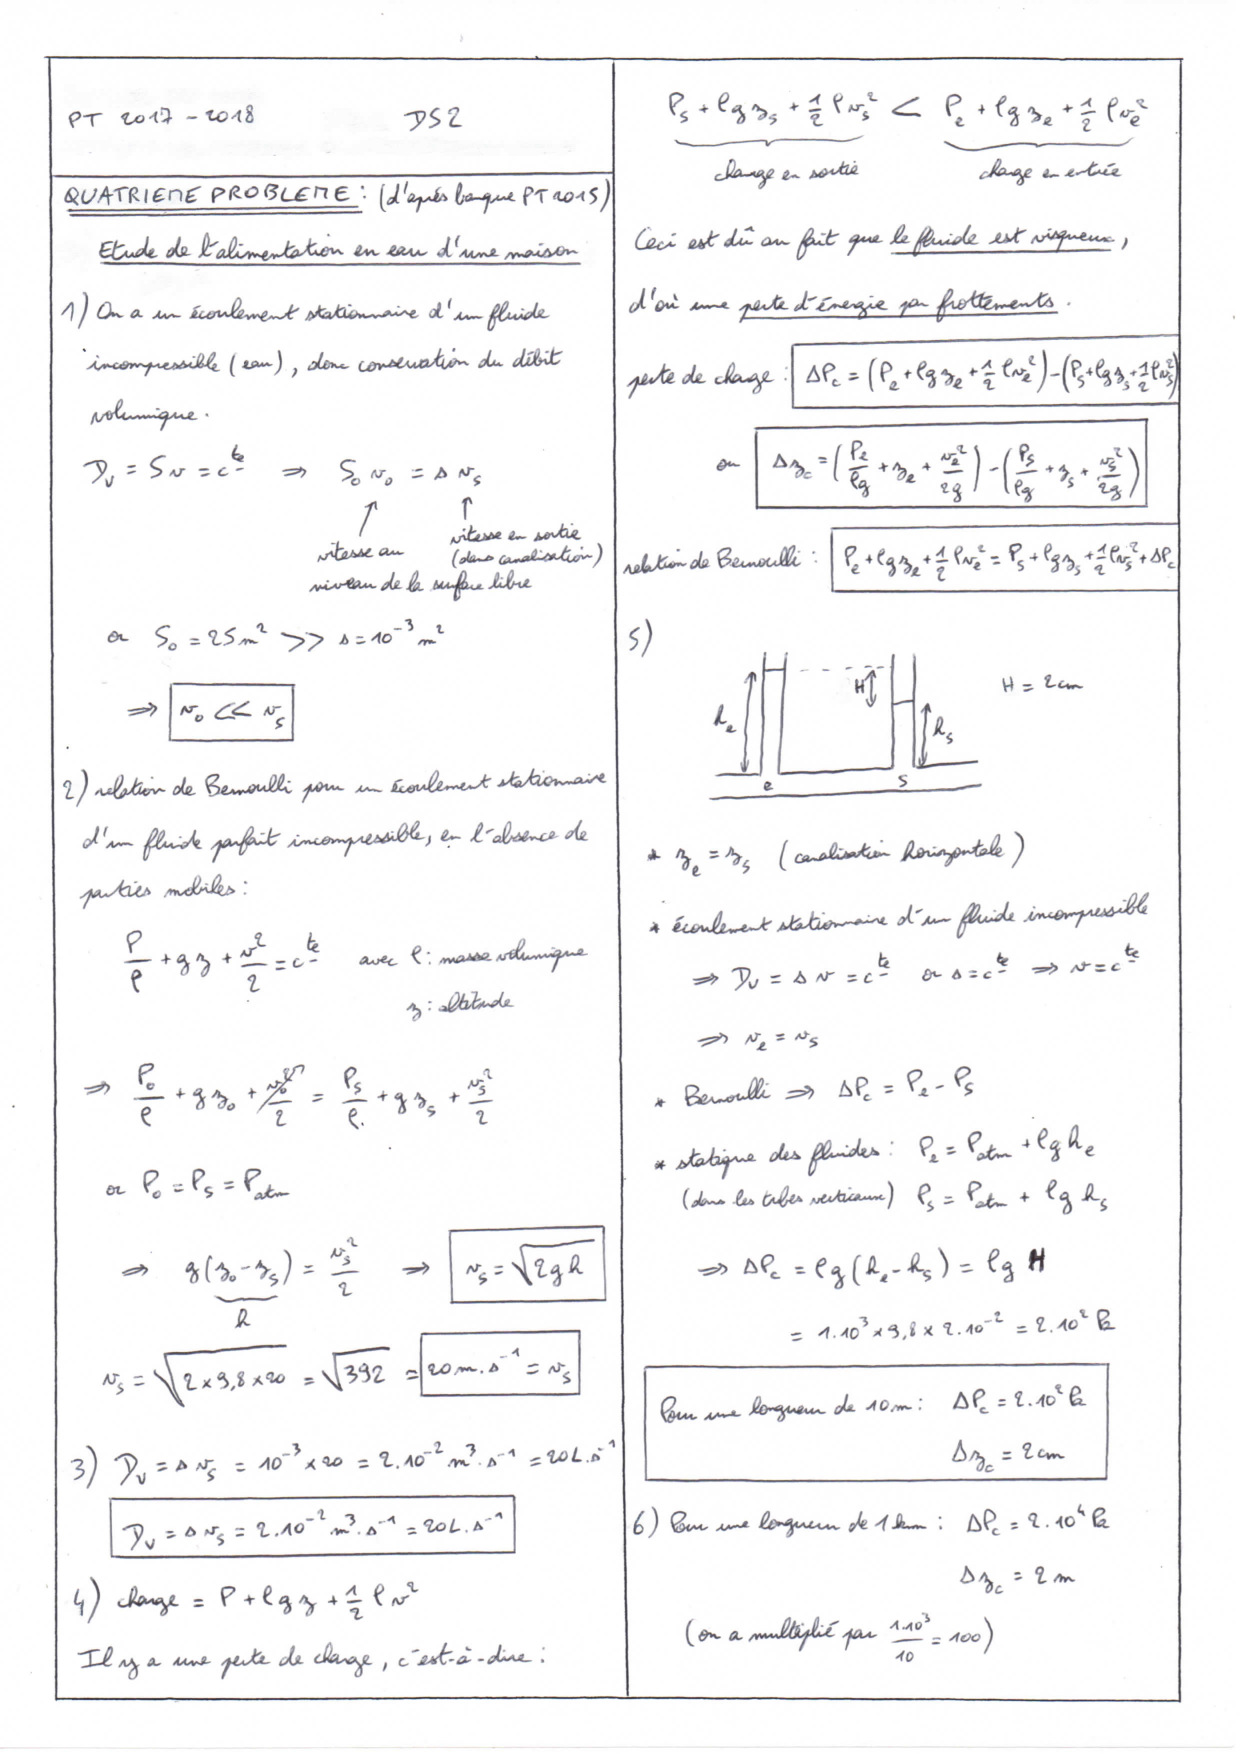 PT 2017 - 2018 DS2
QUATRIEME PROBLEME : (d'après banque PT 2015)
Etude de l'alimentation en eau d'une maison
1) On a un écoulement stationnaire d'un fluide
incompressible (eau), donc conservation du débit
volumique.
D_v = S v = c^te ⇒ S_0 v_0 = s v_s
↗ ↑
vitesse au
niveau de la surface libre
vitesse en sortie
(dans canalisation)
or S_0 = 25 m² >> s = 10^-3 m²
⇒ v_0 << v_s
2) relation de Bernoulli pour un écoulement stationnaire
d'un fluide parfait incompressible, en l'absence de
parties mobiles :
P/ρ + g z + v²/2 = c^te avec ρ : masse volumique
z : altitude
⇒ P_0/ρ + g z_0 + v_0²/2 = P_s/ρ + g z_s + v_s²/2
or P_0 = P_s = P_atm
⇒ g(z_0 - z_s) = v_s²/2 ⇒ v_s = √(2gh)
h
v_s = √(2 x 9,8 x 20) = √392 = 20 m.s^-1 = v_s
3) D_v = s v_s = 10^-3 x 20 = 2.10^-2 m³.s^-1 = 20 L.s^-1
D_v = s v_s = 2.10^-2 m³.s^-1 = 20 L.s^-1
4) charge = P + ρ g z + 1/2 ρ v²
Il y a une perte de charge, c'est-à-dire :
P_s + ρ g z_s + 1/2 ρ v_s² < P_e + ρ g z_e + 1/2 ρ v_e²
charge en sortie charge en entrée
Ceci est dû au fait que le fluide est visqueux,
d'où une perte d'énergie par frottements.
perte de charge : ΔP_c = (P_e + ρ g z_e + 1/2 ρ v_e²) - (P_s + ρ g z_s + 1/2 ρ v_s²)
ou Δz_c = (P_e/ρg + z_e + v_e²/2g) - (P_s/ρg + z_s + v_s²/2g)
relation de Bernoulli : P_e + ρ g z_e + 1/2 ρ v_e² = P_s + ρ g z_s + 1/2 ρ v_s² + ΔP_c
5)
h_e H h_s H = 2 cm
e s
* z_e = z_s (canalisation horizontale)
* écoulement stationnaire d'un fluide incompressible
⇒ D_v = s v = c^te or s = c^te ⇒ v = c^te
⇒ v_e = v_s
* Bernoulli ⇒ ΔP_c = P_e - P_s
* statique des fluides : P_e = P_atm + ρ g h_e
(dans les tubes verticaux) P_s = P_atm + ρ g h_s
⇒ ΔP_c = ρ g (h_e - h_s) = ρ g H
= 1.10³ x 9,8 x 2.10^-2 = 2.10² Pa
Pour une longueur de 10 m : ΔP_c = 2.10² Pa
Δz_c = 2 cm
6) Pour une longueur de 1 km : ΔP_c = 2.10⁴ Pa
Δz_c = 2 m
(on a multiplié par 1.10³/10 = 100)